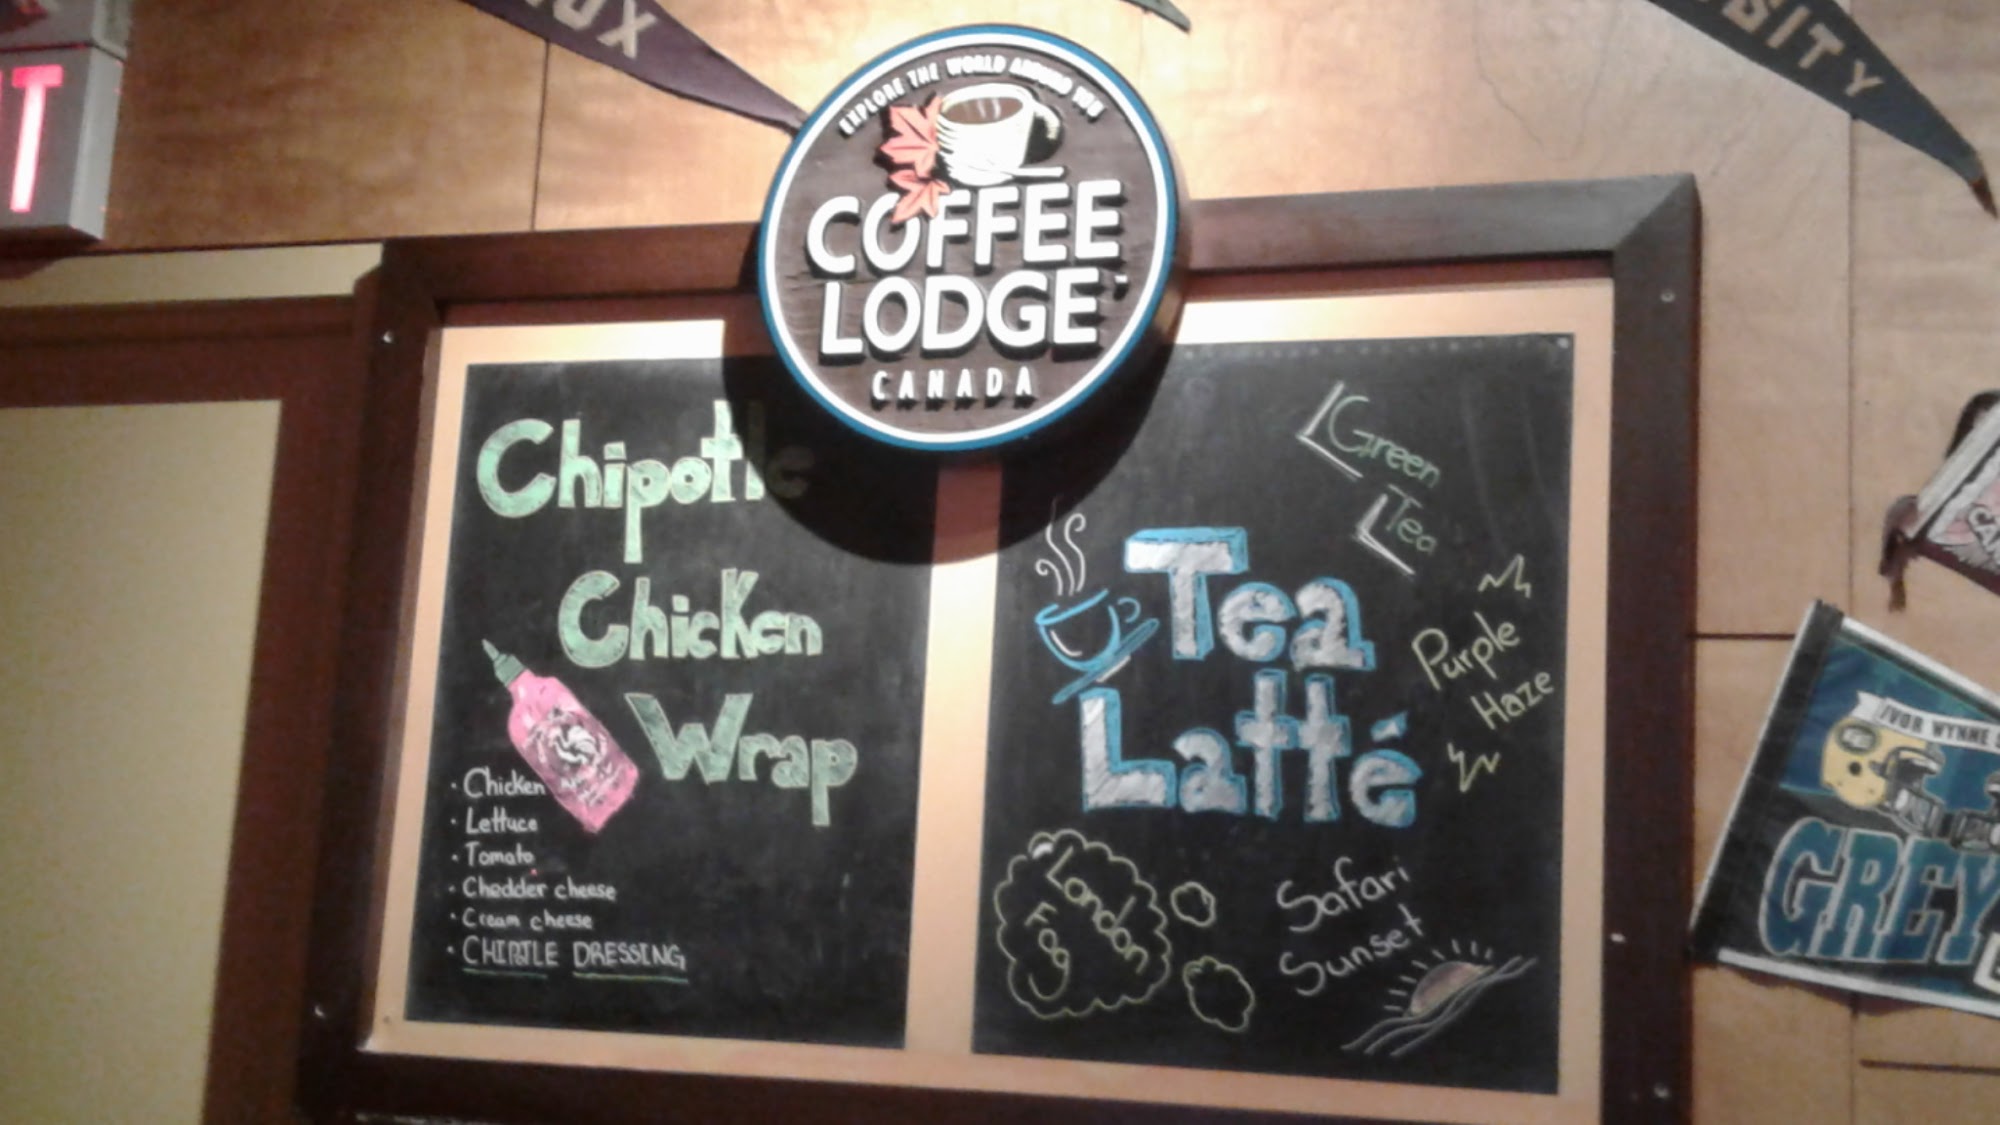 EXPLORE THE WORLD AROUND YOU
COFFEE
LODGE
CANADA
Chipotle
Chicken
Wrap
• Chicken
• Lettuce
• Tomato
• Chedder cheese
• Cream cheese
• CHIPOTLE DRESSING
Green
Tea
Tea
Latté
Purple
Haze
London
Fog
Safari
Sunset
IVOR WYNNE
GREY